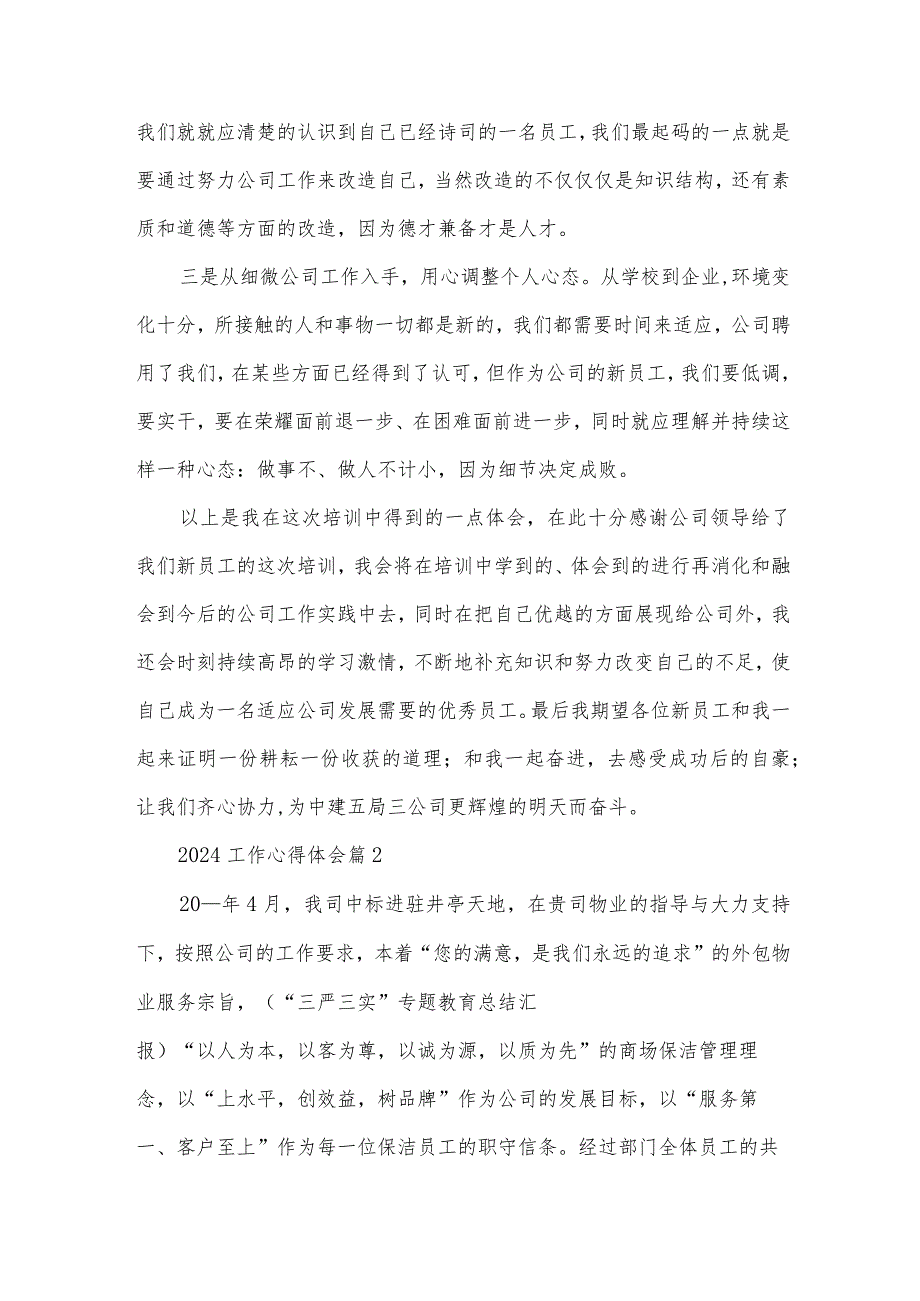 我们就就应清楚的认识到自己已经诗司的一名员工，我们最起码的一点就是
要通过努力公司工作来改造自己，当然改造的不仅仅仅是知识结构，还有素
质和道德等方面的改造，因为德才兼备才是人才。
三是从细微公司工作入手，用心调整个人心态。从学校到企业,环境变
化十分，所接触的人和事物一切都是新的，我们都需要时间来适应，公司聘
用了我们，在某些方面已经得到了认可，但作为公司的新员工，我们要低调，
要实干，要在荣耀面前退一步、在困难面前进一步，同时就应理解并持续这
样一种心态：做事不、做人不计小，因为细节决定成败。
以上是我在这次培训中得到的一点体会，在此十分感谢公司领导给了
我们新员工的这次培训，我会将在培训中学到的、体会到的进行再消化和融
会到今后的公司工作实践中去，同时在把自己优越的方面展现给公司外，我
还会时刻持续高昂的学习激情，不断地补充知识和努力改变自己的不足，使
自己成为一名适应公司发展需要的优秀员工。最后我期望各位新员工和我一
起来证明一份耕耘一份收获的道理；和我一起奋进，去感受成功后的自豪；
让我们齐心协力,为中建五局三公司更辉煌的明天而奋斗。
2024工作心得体会篇2
20—年4月，我司中标进驻井亭天地，在贵司物业的指导与大力支持
下，按照公司的工作要求，本着“您的满意，是我们永远的追求”的外包物
业服务宗旨，（“三严三实”专题教育总结汇
报）“以人为本，以客为尊，以诚为源，以质为先”的商场保洁管理理
念，以“上水平，创效益，树品牌”作为公司的发展目标，以“服务第
一、客户至上”作为每一位保洁员工的职守信条。经过部门全体员工的共